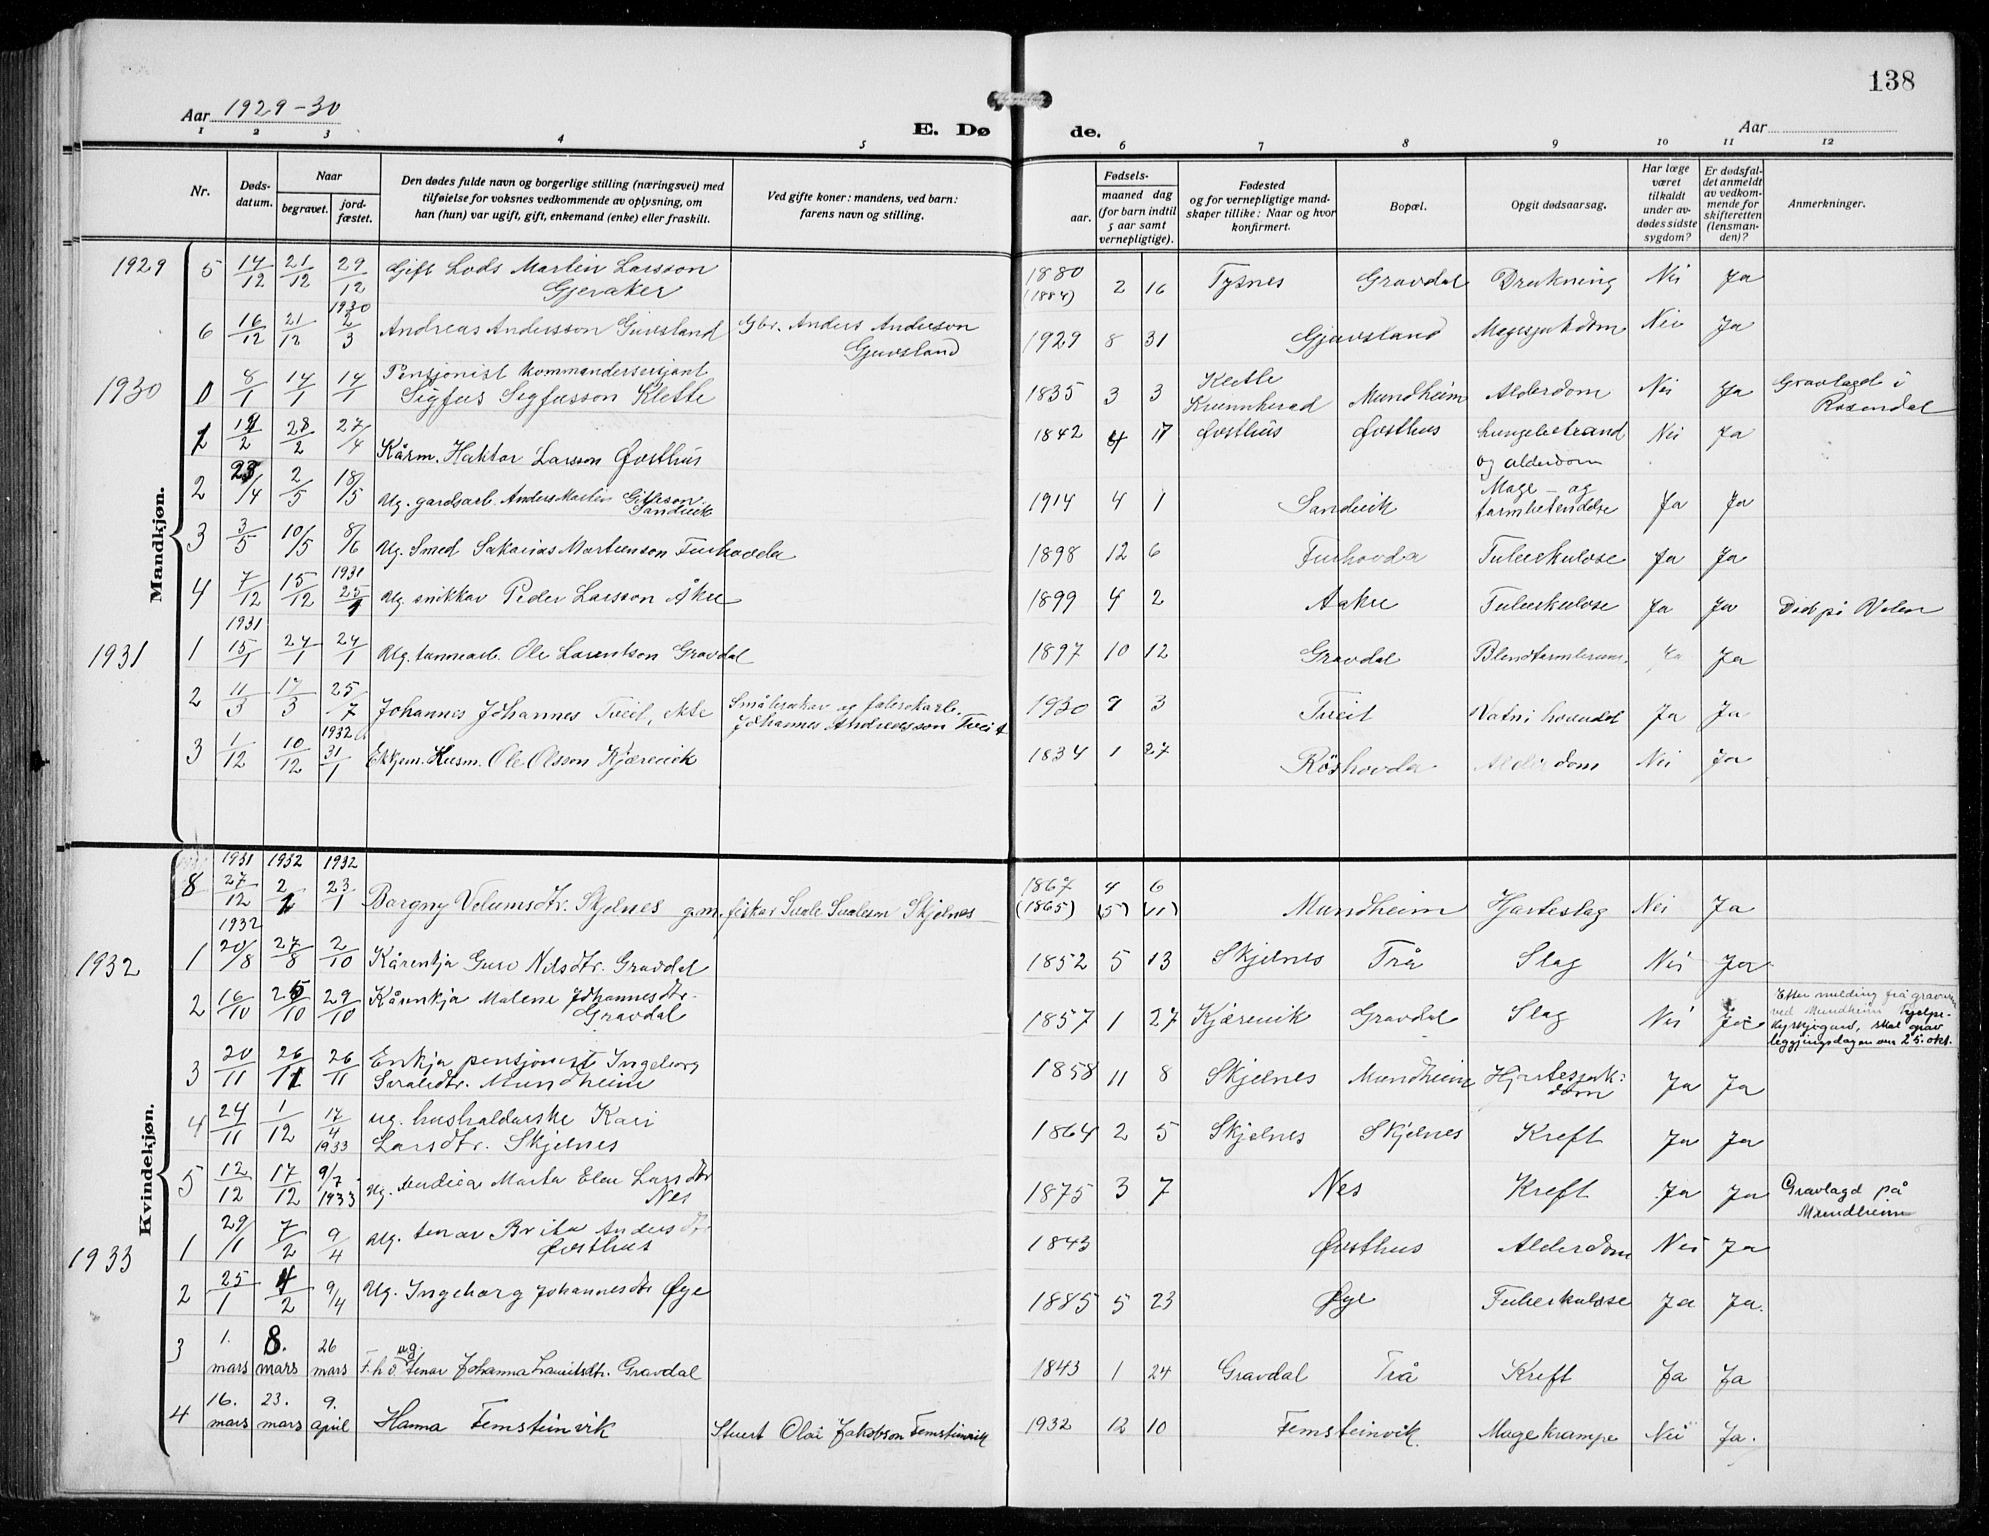 138
Aar 1929-30
E. Dø de.
Aar
1 2 3 4 5 6 7 8 9 10 11 12
Nr.
Døds-
datum.
Naar
begravet.
jord-
fæstet.
Den dødes fulde navn og borgerlige stilling (næringsvei) med
tilføielse for voksnes vedkommende av oplysning, om
han (hun) var ugift, gift, enkemand (enke) eller fraskilt.
Ved gifte koner: mandens, ved barn:
farens navn og stilling.
Fødsels-
aar.
maaned dag
(for barn indtil
5 aar samt
vernepligtige).
Fødested
og for vernepligtige mand-
skaper tillike: Naar og hvor
konfirmert.
Bopæl.
Opgit dødsaarsag.
Har læge
været
tilkaldt
under av-
dødes sidste
sygdom?
Er dødsfal-
det anmeldt
av vedkom-
mende for
skifteretten
(lensman-
den)?
Anmerkninger.
Mandkjøn.
1929 5 14/12 21/12 29/12 Gift Lods Martin Larsson Gjeraker 1880 (1884) 2 16 Tysnes Gravdal Drukning Nei Ja
6 16/12 21/12 1930 2/3 Andreas Andersson Gjuvsland Gbr. Anders Anderson Gjuvsland 1929 8 31 Gjuvsland Magesjukdom Nei Ja
1930 8/1 14/1 14/1 Pensjonist Kommandersersjant Sigfus Sigfusson Klette 1835 3 3 Klette Kvinnherad Mundheim Alderdom Nei Ja Gravlagd i Rosendal
1 28/2 27/4 Kårm. Haktor Larsson Øvsthus 1842 4 17 Øvsthus Øvsthus Lungebetennd og alderdom Nei Ja
2 23/4 2/5 18/5 Ug. gardsarb. Anders Martin Sandvik 1914 4 1 Sandvik Mage- og tarmbetendelse Ja Ja
3 3/5 10/5 8/6 Ug. Smed Sakarias Martinson Furhovda 1898 12 6 Furhovda Tuberkulose Ja Ja
4 7/12 15/12 1931 25/1 Ug. snikkar Peder Larsson Åkre 1899 4 2 Aakre Tuberkulose Ja Ja Død på Valen
1931 1 1931 15/1 24/1 24/1 Ug. Ole Larentson Gravdal 1897 10 12 Gravdal Ja Ja
2 11/3 17/3 25/7 Johannes Johannes Tveit, ekte Småbrukar og Johannes Andreasson Tveit 1930 9 3 Tveit Vatn i hovudet Ja Ja
3 1/12 10/12 1932 31/1 Husm. Ole Olsson Kjærevik 1834 1 27 Røshovda Alderdom Nei Ja
Kvindekjøn.
8 1931 27/12 1932 2/1 1932 23/1 Bargny Velumsdtr. Skjelnes g.m. fiskar Skjelnes 1867 (1865) 4 (5) 6 (11) Mundheim Hjarteslag Nei Ja
1932 1 1932 20/8 27/8 2/10 Kårenkja Guro Nilsdtr. Gravdal 1852 5 13 Skjelnes Trå Slag Nei Ja
2 16/10 25/10 29/10 Kårenkja Malene Johannesdtr. Gravdal 1857 1 27 Kjærevik Gravdal Slag Nei Ja Etter melding frå
ved Mundheim
kyrkjegard, skal grav
leggjingsdagen 25. okt.
3 20/11 26/11 26/11 Enkja pensjonist Ingeborg Mundheim 1858 11 8 Skjelnes Mundheim Hjartesjuk-dom Ja Ja
4 24/11 1/12 17/4 1933 ug. hushalderske Kari Larsdtr. Skjelnes 1864 2 5 Skjelnes Skjelnes Kreft Ja Ja
5 12/12 17/12 9/7 1933 Ug. Marta Elen Larsdtr Nes 1875 3 7 Nes Kreft Ja Ja Gravlagd på Mundheim
1933 1 29/1 7/2 9/4 Ug. tenar Brita Andersdtr Øvsthus 1843 Øvsthus Alderdom Nei Ja
2 25/1 4/2 9/4 Ug. Ingeborg Johannesdtr Øye 1885 5 23 Øye Tuberkulose Ja Ja.
3 1. mars 8. mars 26 mars F.h.v. ug. tenar Johanna Lauritsdtr. Gravdal 1843 1 24 Gravdal Trå Kreft Ja Ja
4 16. mars 23. mars 9. april Hanna Femsteinvik Stuert Olai Jakobson Femsteinvik 1932 12 10 Femsteinvik Magekrampe Nei Ja.